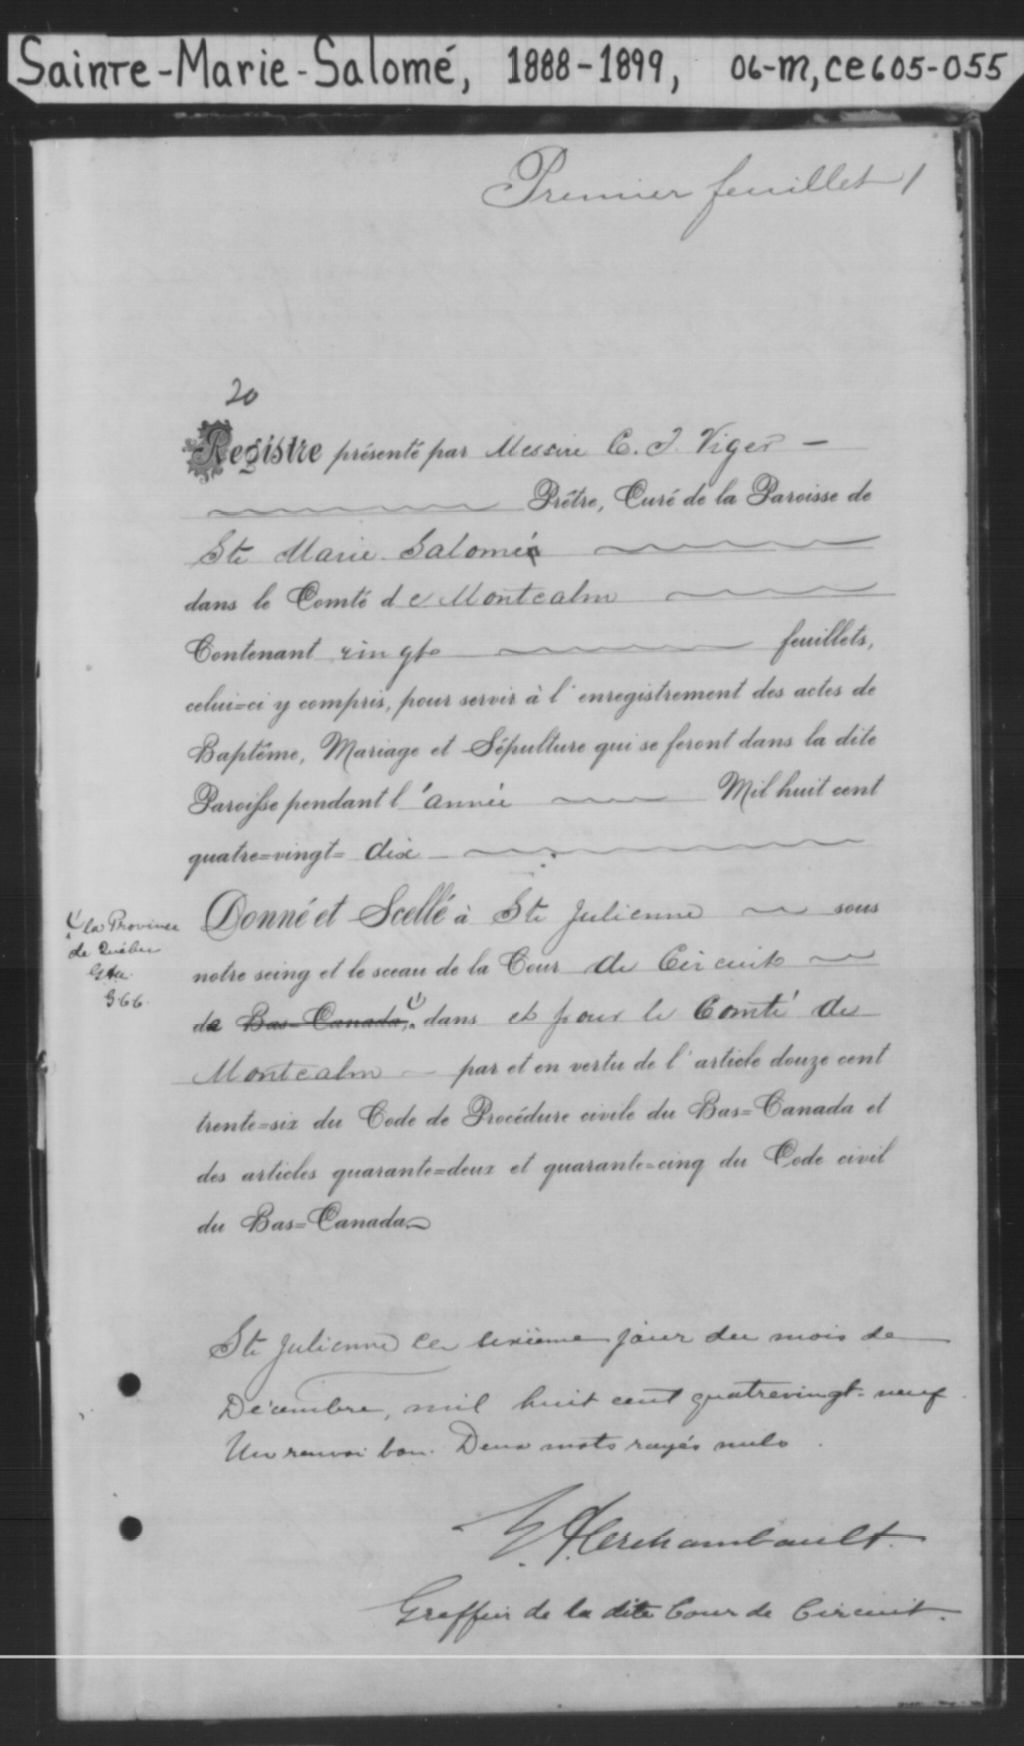 Sainte-Marie-Salomé, 1888-1899, 06-M, CE605-055
Premier feuillet 1
20
Registre présenté par Messire C. J. Viger
Prêtre, Curé de la Paroisse de
Ste Marie Salomé
dans le Comté de Montcalm
Contenant vingt feuillets,
celui=ci y compris, pour servir à l'enregistrement des actes de
Baptême, Mariage et Sépulture qui se feront dans la dite
Paroisse pendant l'année Mil huit cent
quatre=vingt= dix
Donné et Scellé à Ste Julienne sous
notre seing et le sceau de la Cour de Circuit
de Bas=Canada, dans et pour le Comté de
Montcalm par et en vertu de l'article douze cent
trente=six du Code de Procédure civile du Bas=Canada et
des articles quarante=deux et quarante=cinq du Code civil
du Bas=Canada
la Province
de Québec
Ste Julienne ce sixième jour du mois de
Décembre, mil huit cent quatrevingt-neuf
Un renvoi bon. Deux mots rayés nuls.
Archambault.
Greffier de la dite Cour de Circuit.